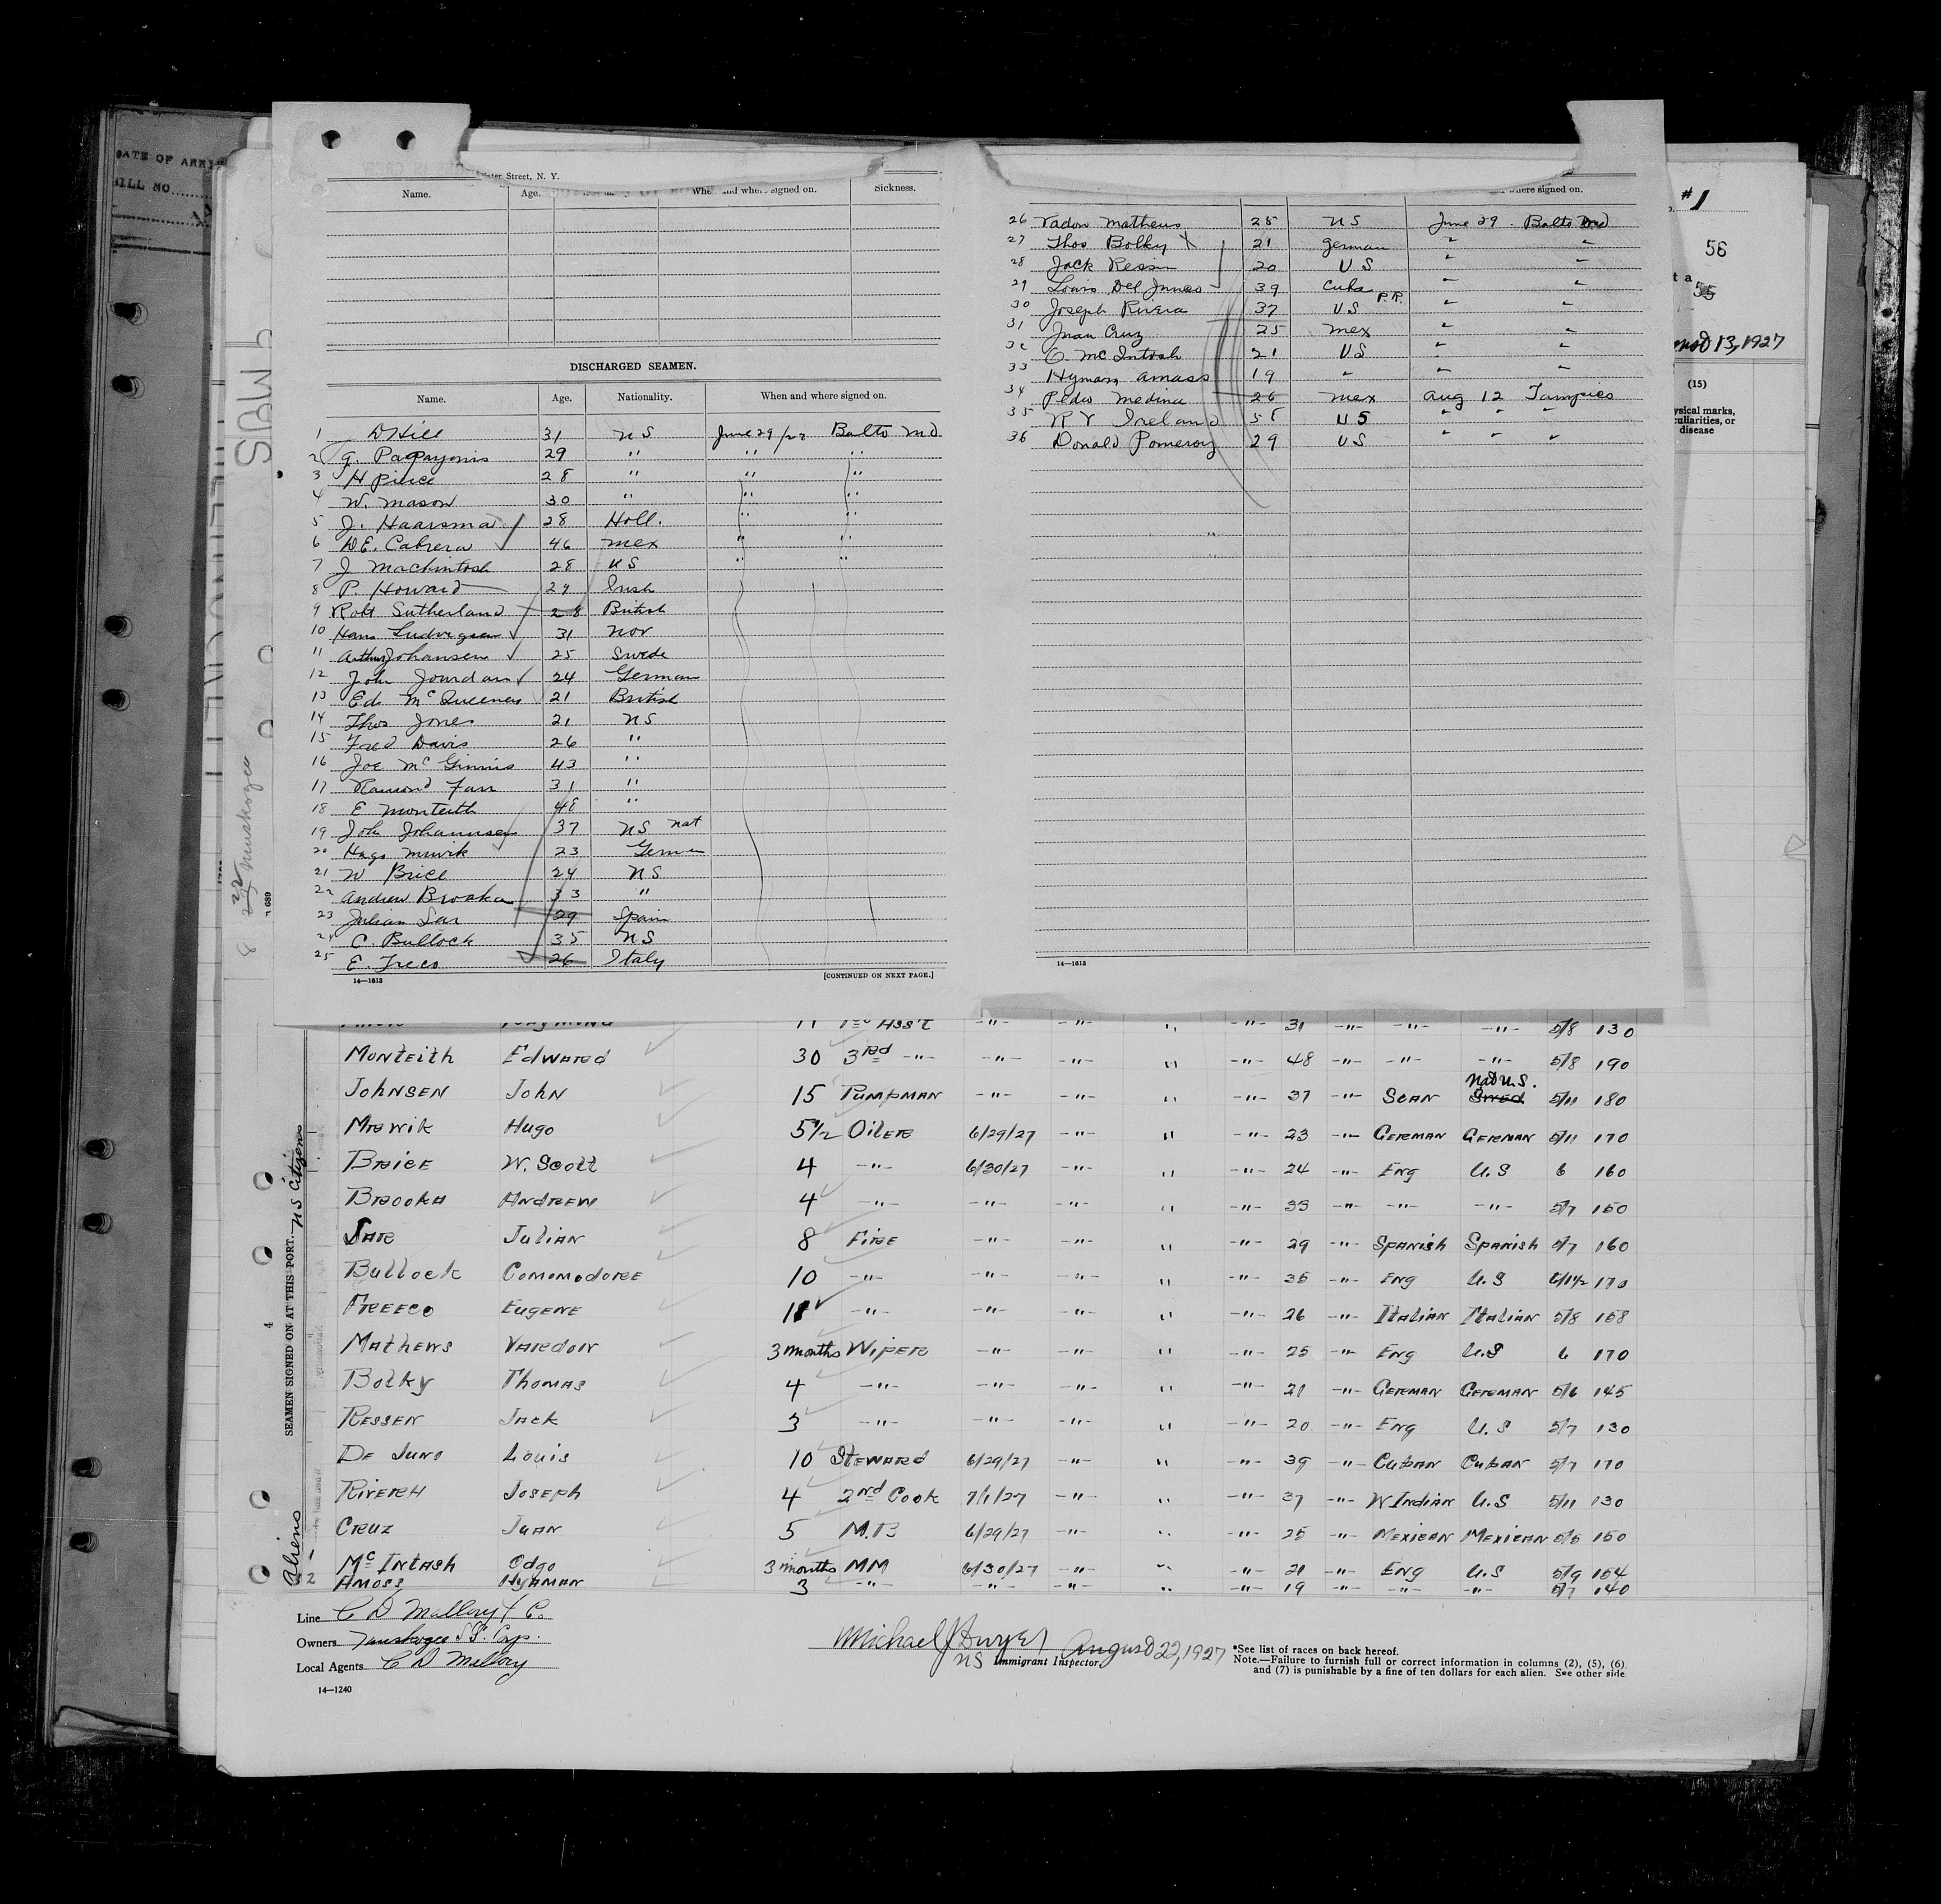 DATE OF ARRI
BILL NO.
Water Street, N. Y.
Name. Age. When and where signed on. Sickness.
DISCHARGED SEAMEN.
Name. Age. Nationality. When and where signed on.
1 D Hill 31 US June 29/27 Balto Md
2 G. Papayonis 29 " " "
3 H Pierce 28 " " "
4 W. Mason 30 " " "
5 J. Haarsma 28 Holl. " "
6 DE. Cabrera 46 Mex " "
7 J Mackintosh 28 US " "
8 P. Howard 29 Irish
9 Robt Sutherland 28 British
10 Hans Ludvigsen 31 Nor
11 Arthur Johansen 25 Swede
12 John Jourdan 24 German
13 Ed McQueeney 21 British
14 Thos Jones 21 US
15 Fred Davis 26 "
16 Joe McGinnis 43 "
17 Ramond Farr 31 "
18 E Monteith 48 "
19 John Johannsen 37 US nat
20 Hugo Mrwik 23 German
21 W Brice 24 US
22 Andrew Brooka 33 "
23 Julian Sar 29 Spain
24 C. Bullock 35 US
25 E. Treco 26 Italy
14—1613 [CONTINUED ON NEXT PAGE.]
where signed on.
26 Vadon Mathews 25 US June 29 Balto Md
27 Thos Bolky X 21 German " "
28 Jack Ressin 20 US " "
29 Louis Del Junco 39 Cuba " "
30 Joseph Rivera 37 US P.R. " "
31 Juan Cruz 25 Mex " "
32 O. McIntosh 21 US " "
33 Hyman Amass 19 " " "
34 Pedro Medina 26 Mex Aug 12 Tampico
35 R Y Ireland 58 US " " "
36 Donald Pomeroy 29 US " " "
14—1613
#1
56
t a
55
13, 1927
(15)
ysical marks,
culiarities, or
disease
Muskogee
689
SEAMEN SIGNED ON AT THIS PORT. US Citizens
4
Aliens
11 Ass't -"- -"- " -"- 31 -"- -"- -"- 5/8 130
Monteith Edward 30 3rd -"- -"- -"- " -"- 48 -"- -"- -"- 5/8 190
Johnsen John 15 Pumpman -"- -"- " -"- 37 -"- Scan Swed Nat U.S. 5/11 180
Mrwik Hugo 5 1/2 Oiler 6/29/27 -"- " -"- 23 -"- German German 5/11 170
Brice W. Scott 4 -"- 6/30/27 -"- " -"- 24 -"- Eng U.S 6 160
Brooka Andrew 4 -"- -"- -"- " -"- 33 -"- -"- -"- 5/7 150
Sar Julian 8 Fire -"- -"- " -"- 29 -"- Spanish Spanish 5/7 160
Bullock Commodore 10 -"- -"- -"- " -"- 35 -"- Eng U.S 5/11½ 170
Treeco Eugene 11 -"- -"- -"- " -"- 26 -"- Italian Italian 5/8 158
Mathews Vardon 3 months Wiper -"- -"- " -"- 25 -"- Eng U.S 6 170
Bolky Thomas 4 -"- -"- -"- " -"- 21 -"- German German 5/6 145
Ressen Jack 3 -"- -"- -"- " -"- 20 -"- Eng U.S 5/7 130
De Juno Louis 10 Steward 6/29/27 -"- " -"- 39 -"- Cuban Cuban 5/7 170
Rivera Joseph 4 2nd Cook 7/1/27 -"- " -"- 37 -"- W Indian U.S 5/11 130
Cruz Juan 5 M.B 6/29/27 -"- " -"- 25 -"- Mexican Mexican 5/5 150
McIntash Odgo 3 months MM 6/30/27 -"- " -"- 21 -"- Eng U.S 5/9 154
Amoss Hyaman 3 -"- -"- -"- " -"- 19 -"- -"- -"- 5/7 140
Line C D Mallory & Co
Owners Muskogee SS. Corp.
Local Agents C D Mallory
14—1240
Michael J Dwyer
US Immigrant Inspector August 22, 1927
*See list of races on back hereof.
Note.—Failure to furnish full or correct information in columns (2), (5), (6)
and (7) is punishable by a fine of ten dollars for each alien. See other side